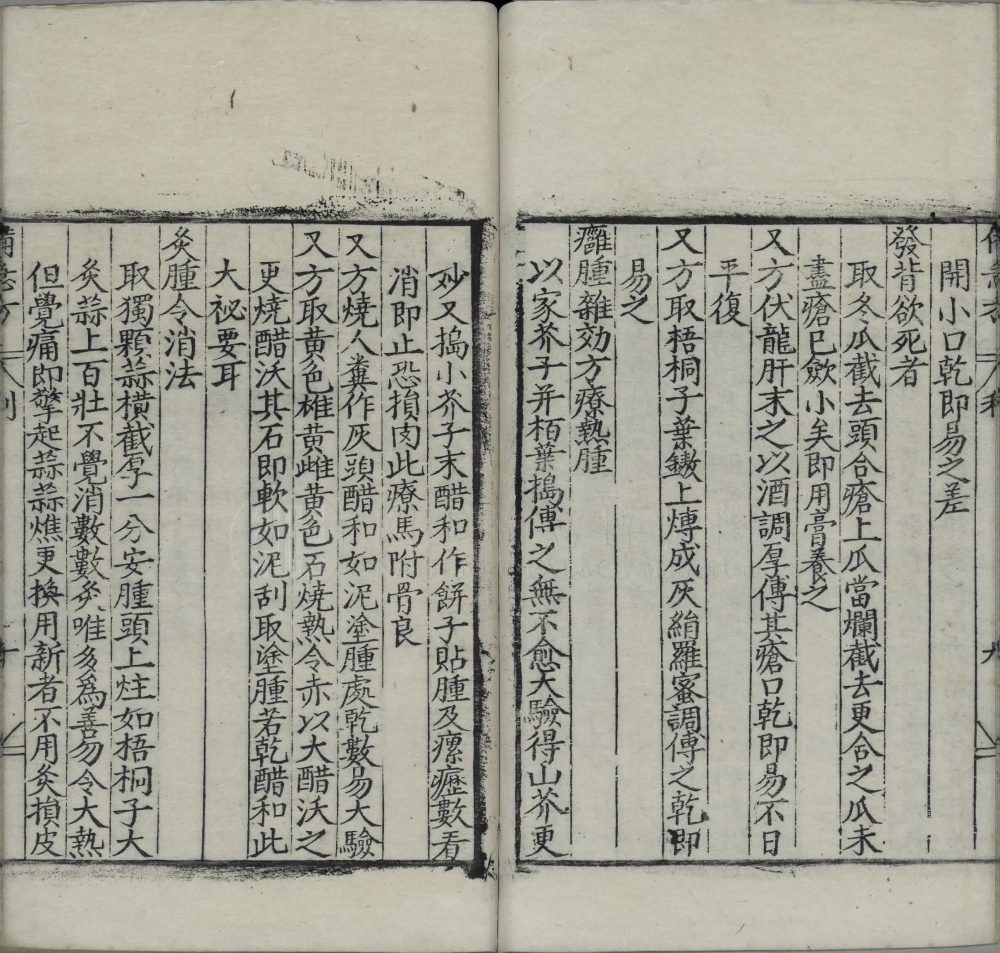 開小口乾即易之差
發背欲死者
取冬瓜截去頭合瘡上瓜當爛截去更合之瓜未
盡瘡已歛小矣即用膏養之
又方伏龍肝末之以酒調厚傅其瘡口乾即易不日
平復
又方取梧桐子葉鏉上煿成灰絹羅蜜調傅之乾即
易之
癰腫雜効方療熱腫
以家芥子并栢葉搗傅之無不愈大驗得山芥更
妙又搗小芥子末醋和作餅子貼腫及瘰癧數看
消即止恐損肉此療馬附骨良
又方燒人糞作灰頭醋和如泥塗腫處乾數易大驗
又方取黃色雄黃雌黃色石燒熱令赤以大醋沃之
更燒醋沃其石即軟如泥刮取塗腫若乾醋和此
大祕要耳
灸腫令消法
取獨顆蒜橫截厚一分安腫頭上炷如梧桐子大
灸蒜上百壯不覺消數數灸唯多為善勿令大熱
但覺痛即擎起蒜蒜燋更換用新者不用灸損皮